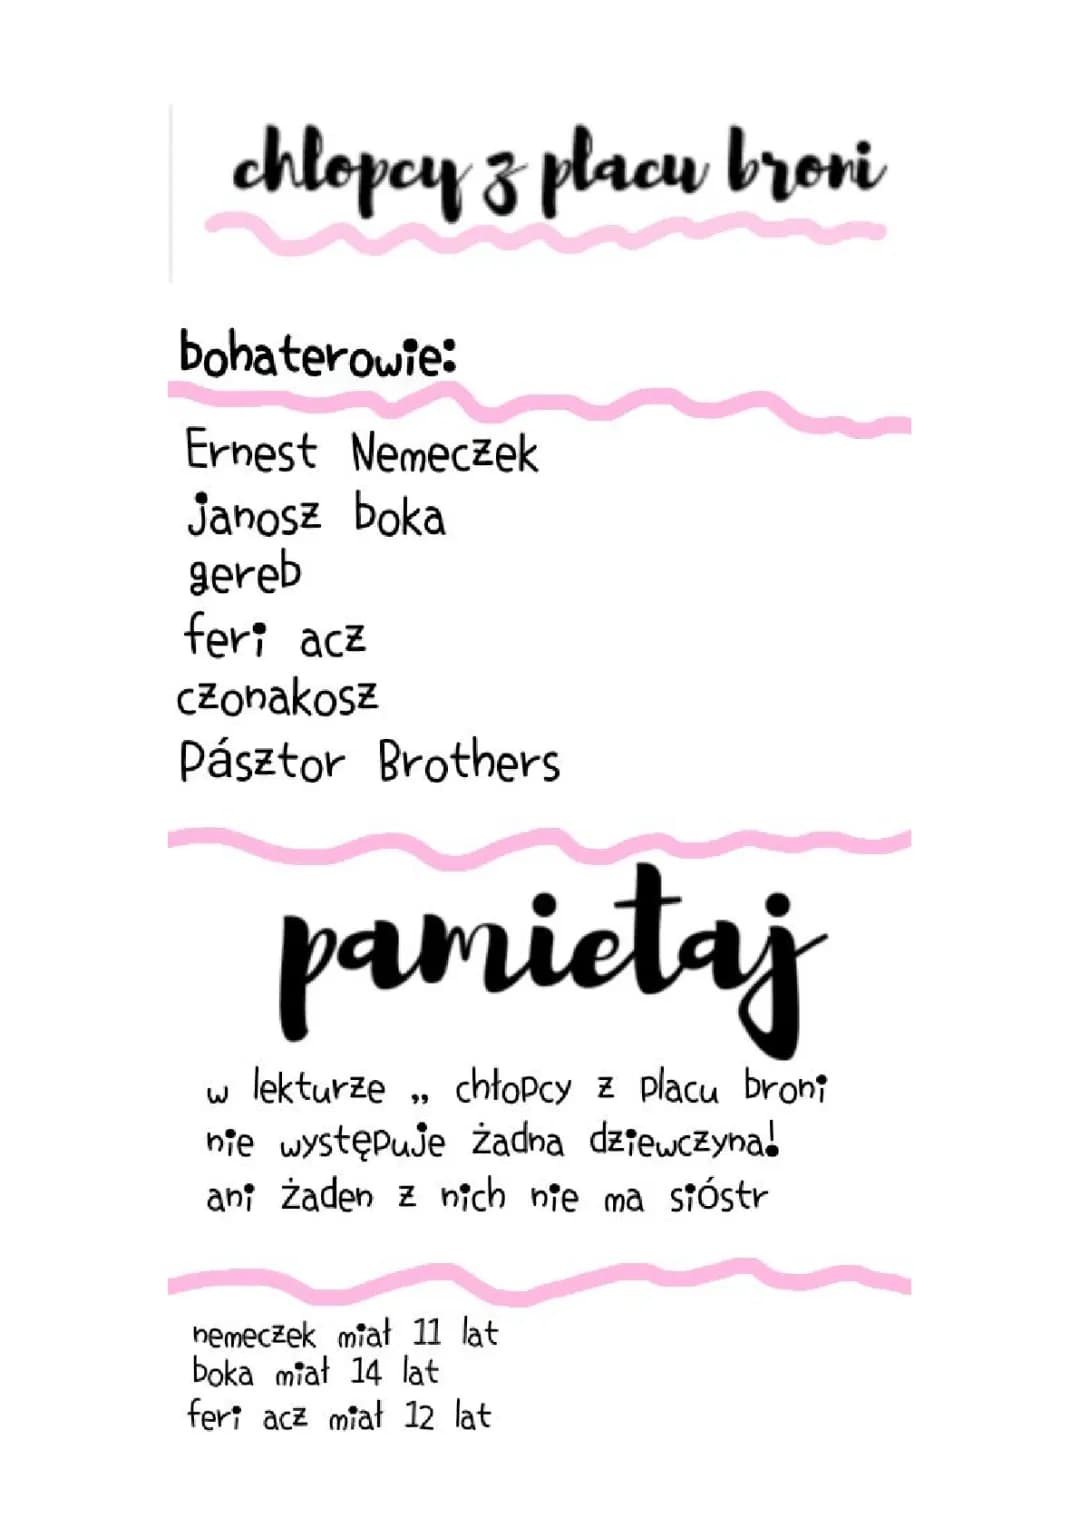 chłopcy z placu broni
bohaterowie:
Ernest Nemeczek
janosz boka
gereb
feri acz
czonakosz
Pásztor Brothers
pamietaj
w lekturze „ chłopcy z placu broni
nie występuje żadna dziewczyna!
ani żaden z nich nie ma sióstr
nemeczek miał 11 lat
boka miał 14 lat
feri acz miał 12 lat